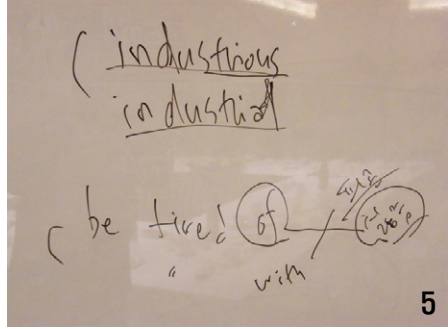 ( industrious
industrial
( be tired of
" with
5